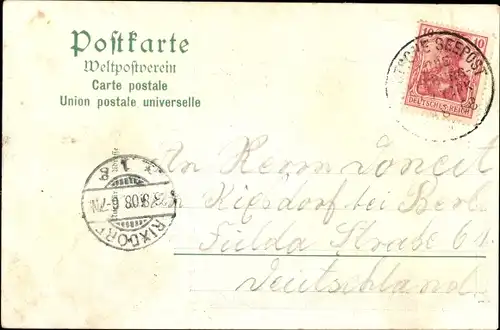 Postkarte
Weltpostverein
Carte postale
Union postale universelle
10 10
DEUTSCHES REICH
DEUTSCHE SEEPOST
RIXDORF
1
An Herrn
in Rigsdorf bei Berl.
Fulda Straße 61
Deutschland